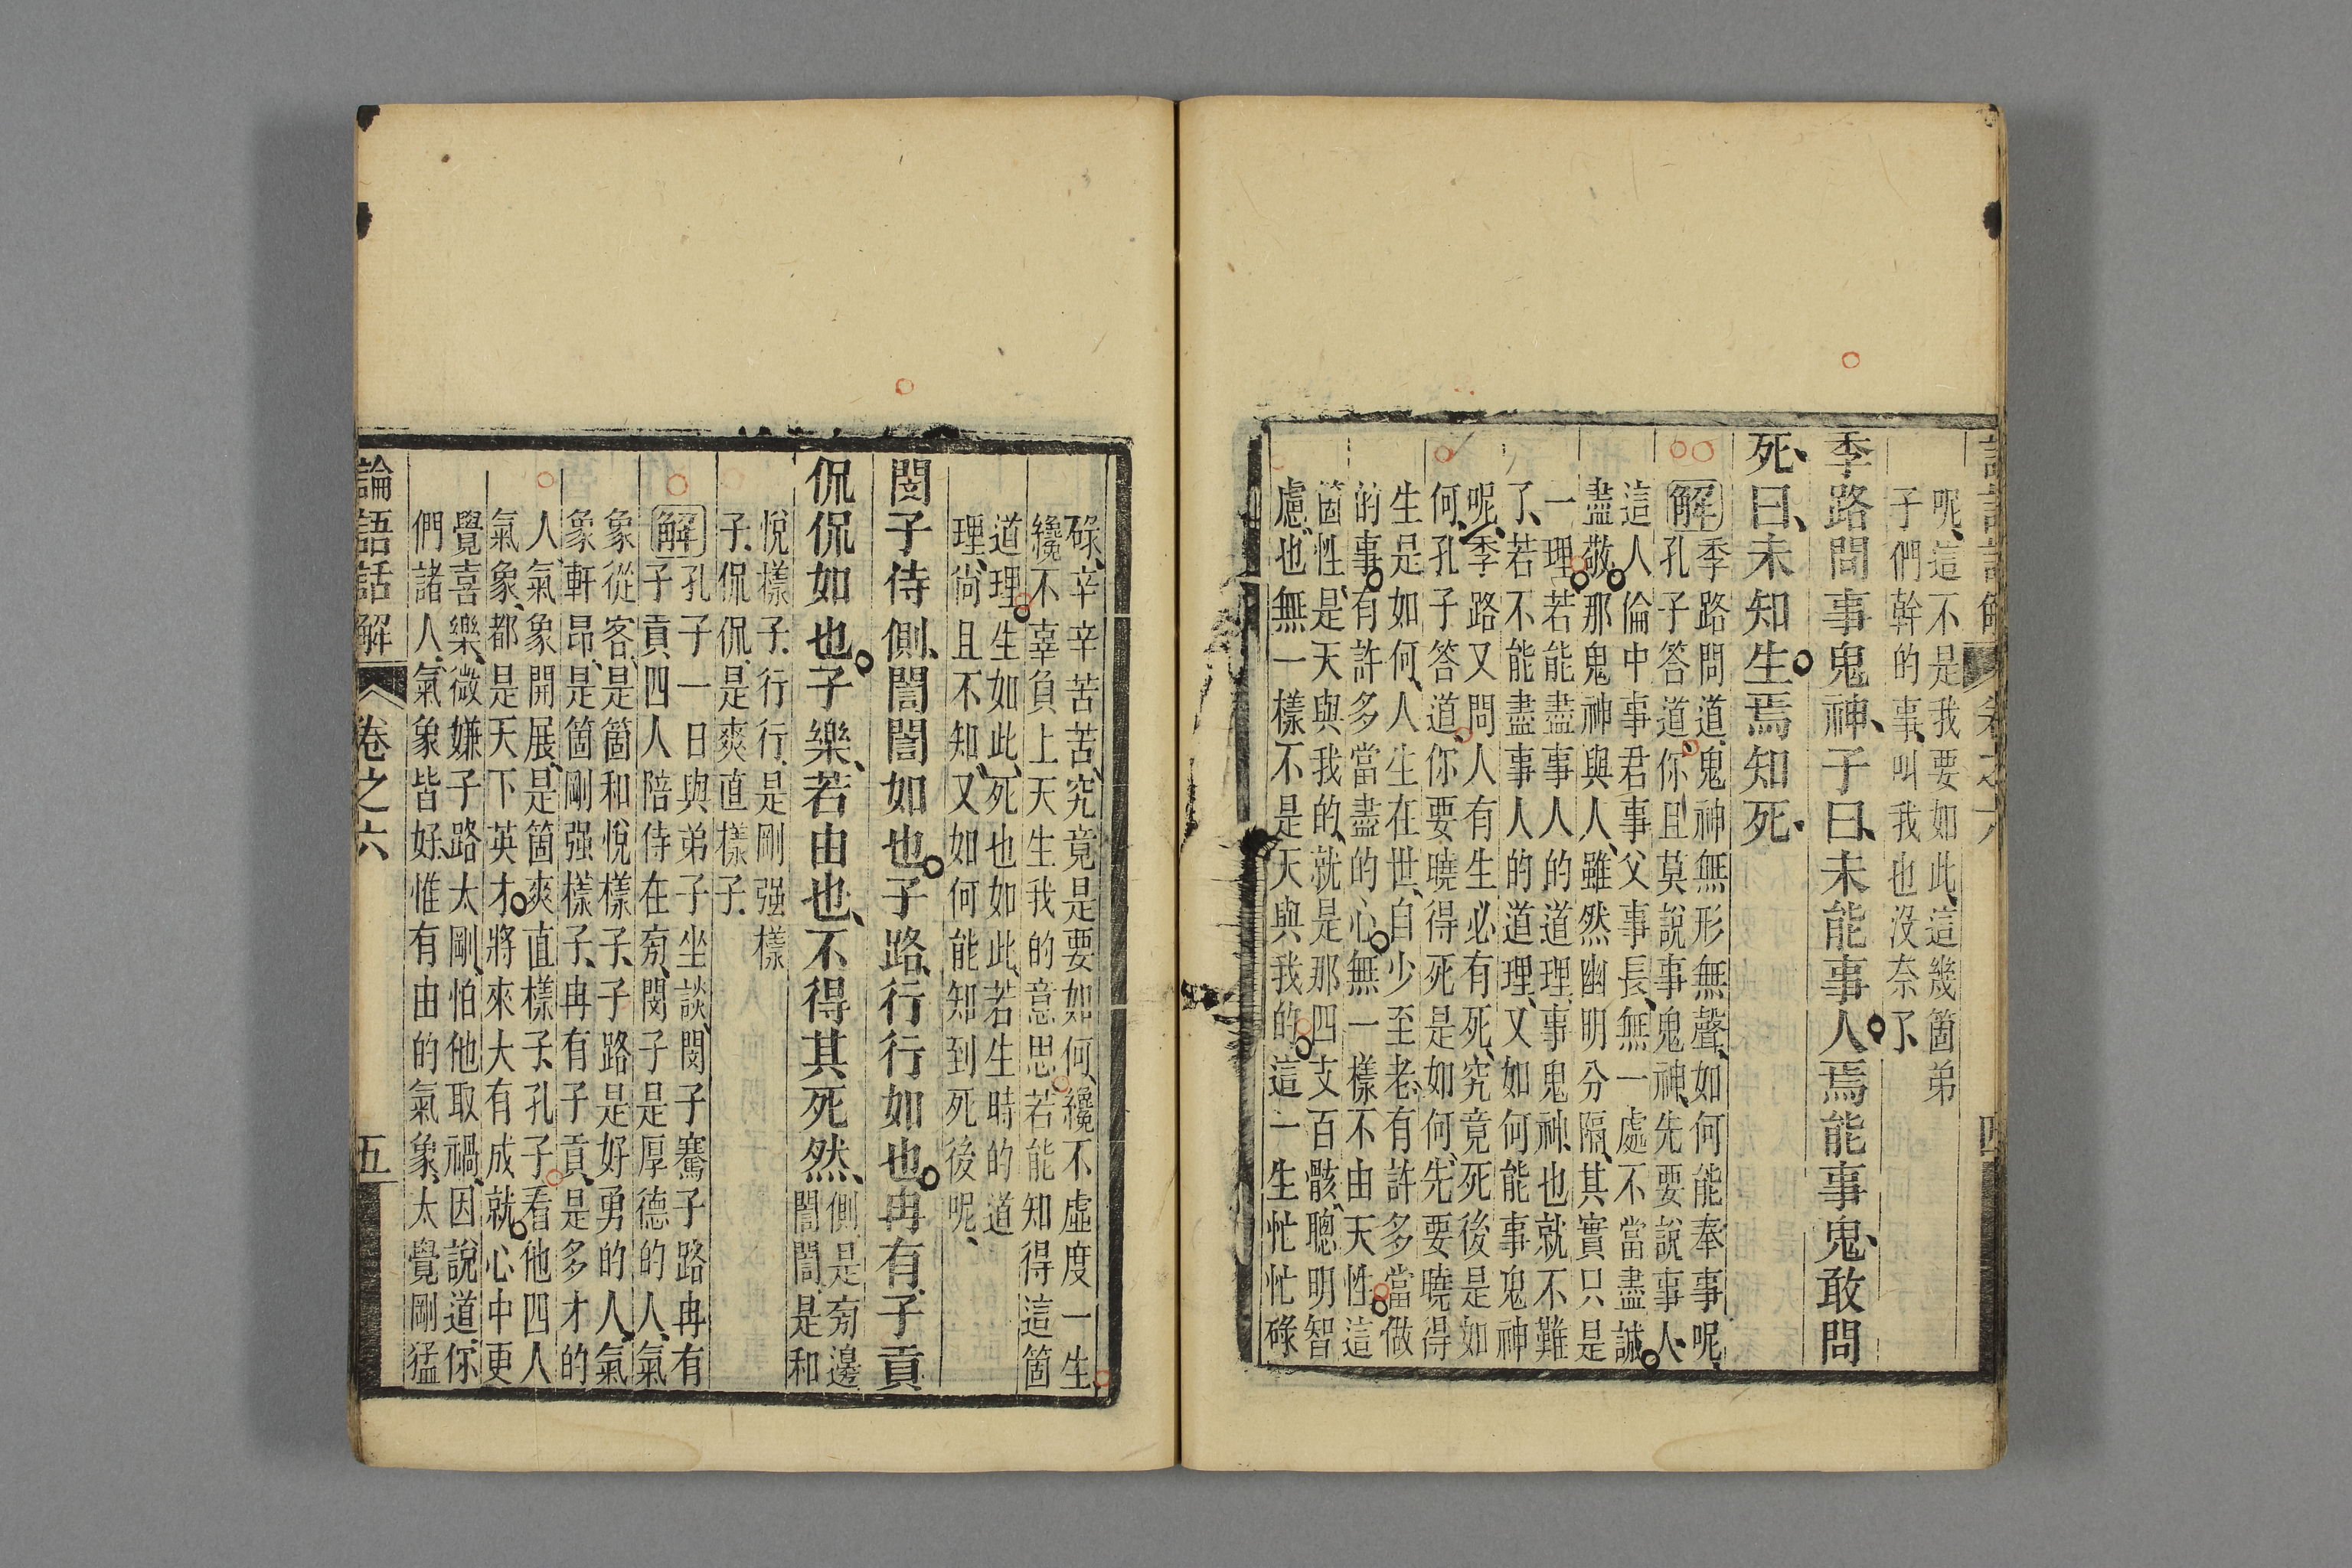 呢、這不是我要如此、這幾箇弟
子們幹的事、叫我也没奈了、
季路問事鬼神、子曰、未能事人焉能事鬼、敢問
死、曰、未知生焉知死、
解季路問道、鬼神無形無聲、如何能奉事呢、
孔子答道、你且莫說事鬼神、先要說事人、
這人倫中事君事父事長、無一處不當盡誠
盡敬那鬼神與人、雖然幽明分隔、其實只是
一理若能盡事人的道理、事鬼神、也就不難
了、若不能盡事人的道理、又如何能事鬼神
呢、季路又問人有生必有死、究竟死後是如
何、孔子答道、你要曉得死是如何、先要曉得
生是如何、人生在世、自少至老、有許多當做
的事有許多當盡的心無一樣不由天性這
箇性、是天與我的、就是那四支百骸、聰明智
慮、也無一樣不是天與我的這一生忙忙碌
碌、辛辛苦苦、究竟是要如何、纔不虛度一生
纔不辜負上天生我的意思若能知得這箇
道理生如此、死也如此、若生時的道
理、尚且不知、又如何能知到死後呢、
閔子侍側、誾誾如也子路、行行如也冉有、子貢
侃侃如也子樂、若由也、不得其死然、側、是旁邊
誾誾、是和
悅樣子、行行、是剛强樣
子、侃侃、是爽直樣子、
解孔子一日與弟子坐談、閔子騫子路冉有
子貢、四人陪侍在旁、閔子是厚德的人、氣
象從容、是箇和悅樣子、子路是好勇的人、氣
象軒昂、是箇剛强樣子、冉有子貢、是多才的
人、氣象開展、是箇爽直樣子、孔子看他四人
氣象、都是天下英才將來大有成就心中更
覺喜樂、微嫌子路太剛、怕他取禍、因說道、你
們諸人、氣象皆好、惟有由的氣象、太覺剛猛
論語話解
卷之六
五